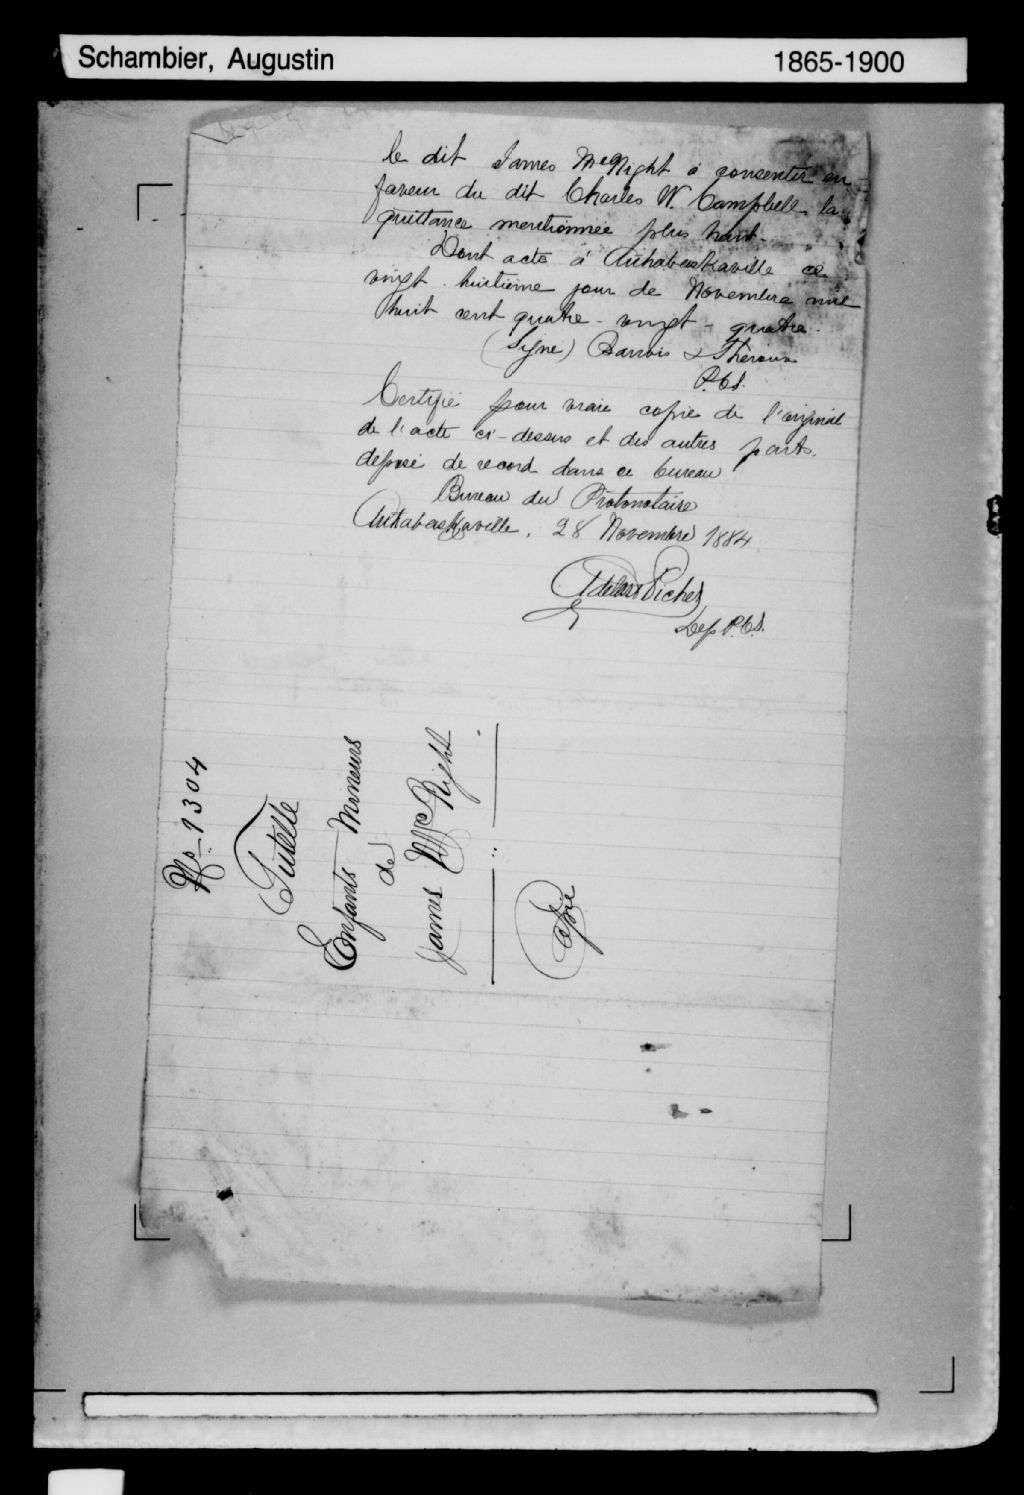 Schambier, Augustin
1865-1900
le dit James McNight à consentir en
faveur du dit Charles W. Campbell la
quittance mentionnée plus haut.
Dont acte à Arthabaskaville ce
vingt huitième jour de Novembre mil
huit cent quatre-vingt-quatre.
(Signé) Barwis & Theroux
P.C.S.
Certifié pour vraie copie de l'original
de l'acte ci-dessus et des autres parts.
déposé de record dans ce bureau
Bureau du Protonotaire
Arthabaskaville, 28 Novembre 1884
Picher
Dep P.C.S.
No 1304
Tutelle
Enfants Mineurs
de
James McNight
Copie